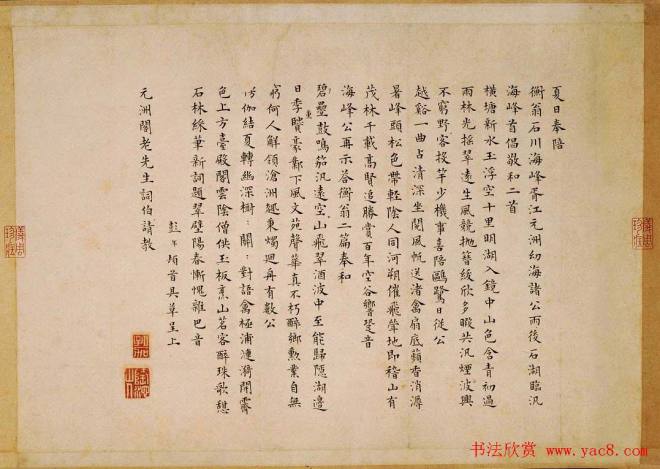 夏日奉陪
衡翁石川海峰胥江元洲幼海諸公雨後石湖臨汎
海峰首倡敬和二首
橫塘新水玉浮空十里明湖入鏡中山色含青初過
雨林光搖翠遠生風競拋簪紱欣多暇共汎煙波興
不窮野客投竿少機事喜陪鷗鷺日從公
越谿一曲占清深坐閱風帆送渚禽扇底蘋香消溽
暑峰頭松色帶輕陰人同河朔催飛斝地即稽山有
茂林千載高賢追勝賞百年空谷嚮跫音
海峰公再示答衡翁二篇奉和
碧壘鼓鳴笳汎遠空山飛翠酒波中至能歸隱湖邊
日季重賡豪鄴下風文苑聲華真不朽醉鄉勲業自無
窮何人解領滄洲趣秉燭迴舟有數公
伽結夏轉幽深樹：關：對語禽極浦漣漪開霽
色上方臺殿閣雲陰僧供玉板烹山茗客醉珠歌憩
石林綵筆新詞題翠壁陽春慚愧雜巴音
彭年頓首具草呈上
元洲閣老先生詞伯請教
书法欣赏 www.yac8.com